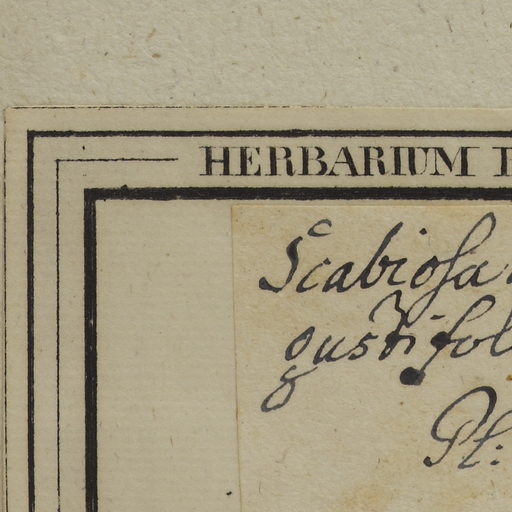 HERBARIUM
Scabiosa
gustifol
Pl: